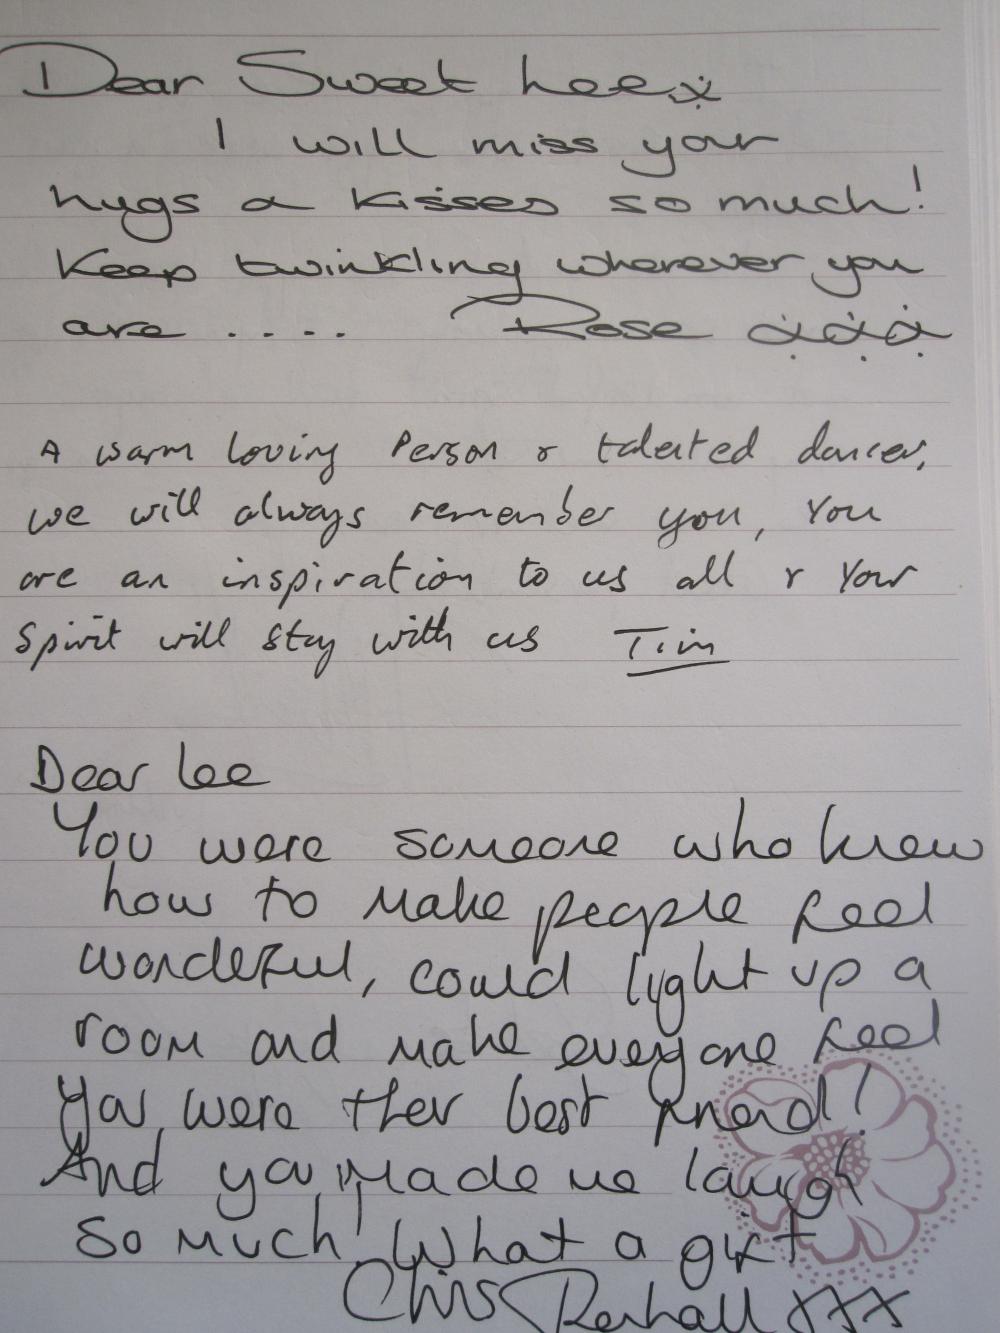 Dear Sweet Lee x
I will miss your
hugs & kisses so much!
Keep twinkling wherever you
are ..... Rose xxx
A warm loving Person & talented dancer,
we will always remember you, You
are an inspiration to us all & Your
Spirit will stay with us Tim
Dear Lee
You were someone who knew
how to make people feel
wonderful, could light up a
room and make everyone feel
you were their best friend!
And you made me laugh
so much! What a gift
Chris xxx